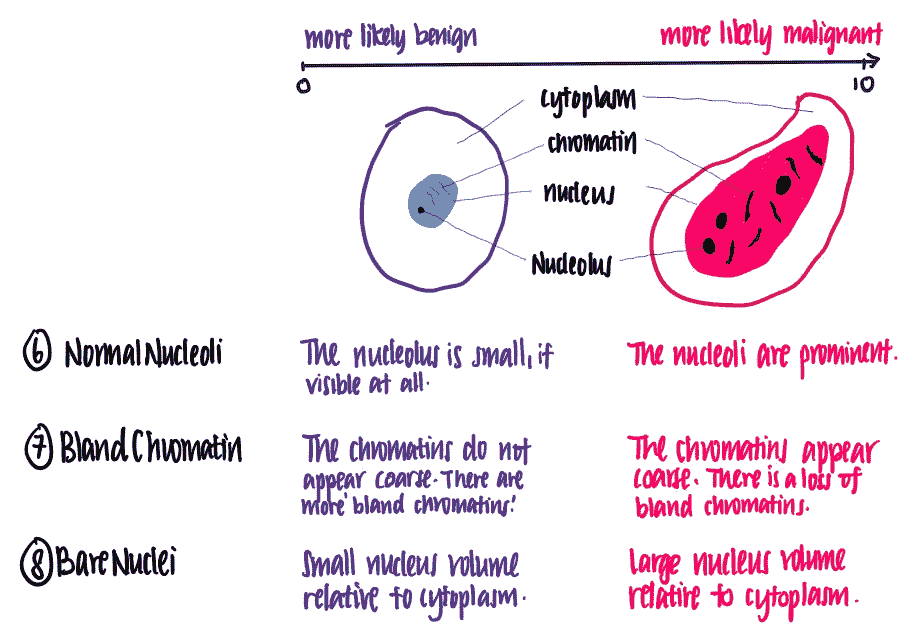 more likely benign
more likely malignant
0
10
cytoplasm
chromatin
nucleus
Nucleolus
6 Normal Nucleoli
The nucleolus is small, if
visible at all.
The nucleoli are prominent.
7 Bland Chromatin
The chromatins do not
appear coarse. There are
more 'bland chromatins.'
The chromatins appear
coarse. There is a loss of
bland chromatins.
8 Bare Nuclei
Small nucleus volume
relative to cytoplasm.
Large nucleus volume
relative to cytoplasm.